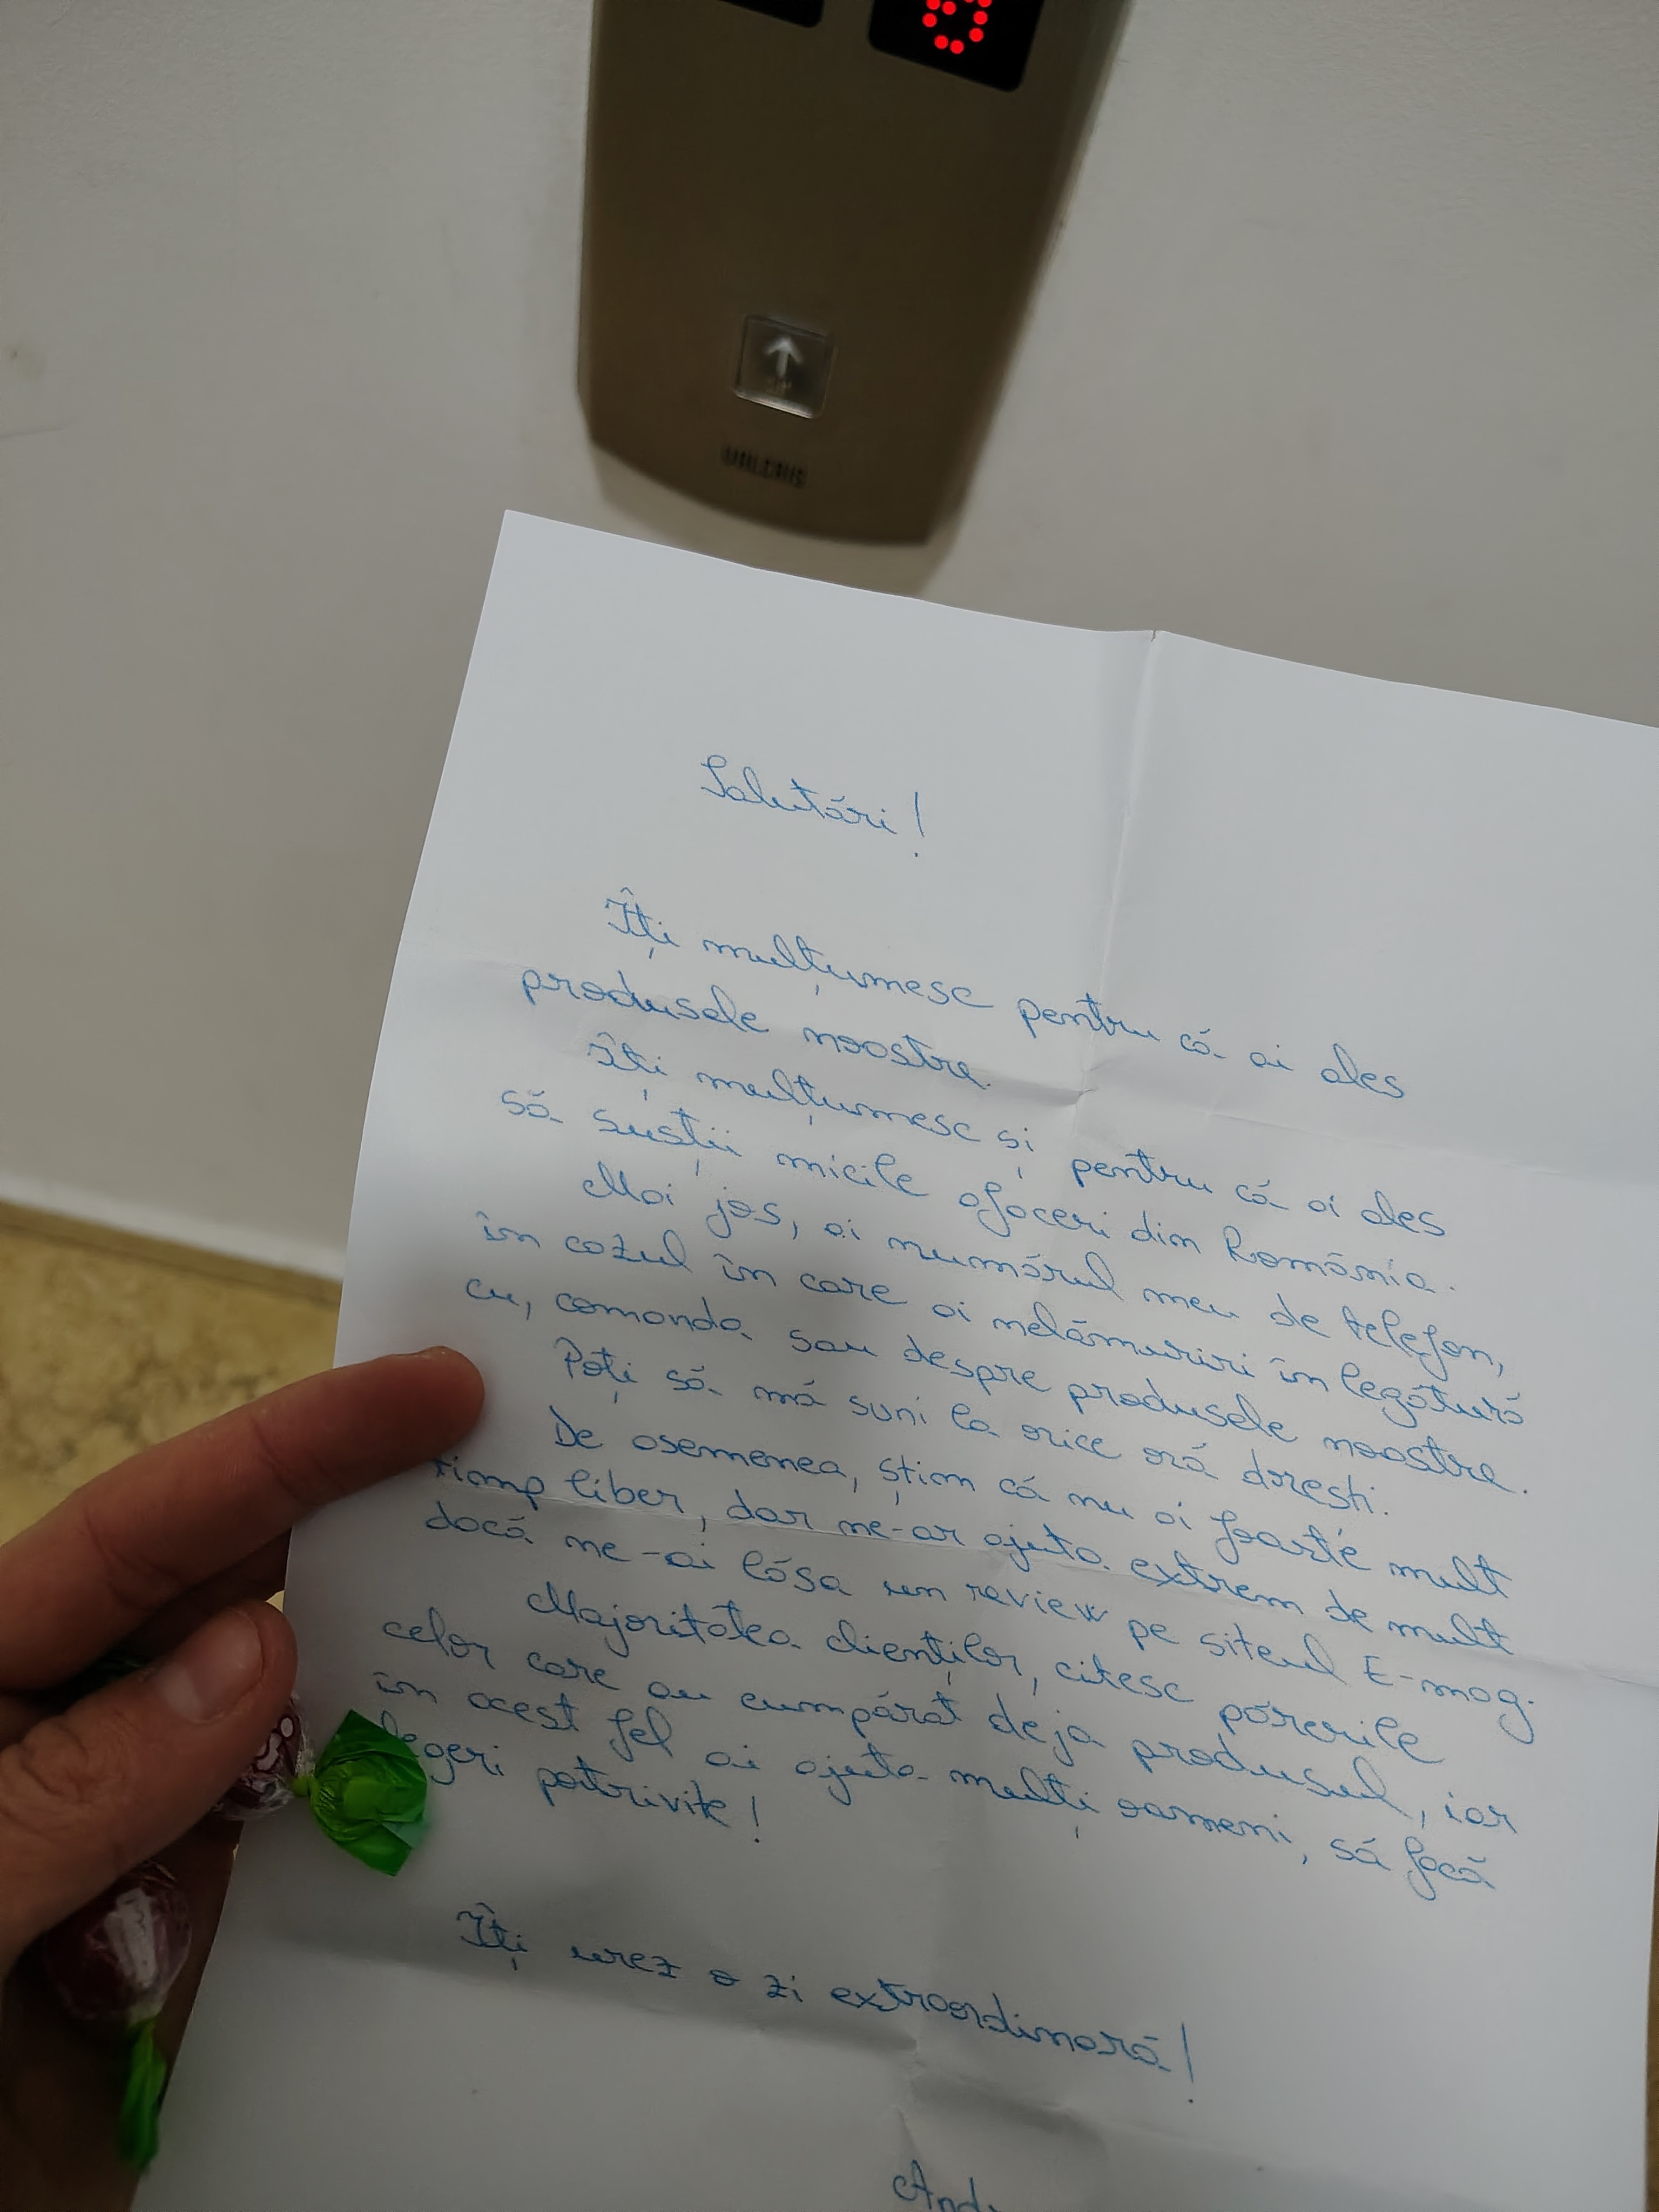 Salutări!
Îți mulțumesc pentru că ai ales
produsele noastre.
Îți mulțumesc și pentru că ai ales
să susții micile afaceri din România.
Mai jos, ai numărul meu de telefon,
în cazul în care ai nelămuriri în legătură
cu, comanda sau despre produsele noastre.
Poți să mă suni la orice oră dorești.
De asemenea, știm că nu ai foarte mult
timp liber, dar ne-ar ajuta extrem de mult
dacă ne-ai lăsa un review pe siteul E-mag.
Majoritatea clienților, citesc părerile
celor care au cumpărat deja produsul, iar
în acest fel ai ajuta mulți oameni, să facă
legeri potrivite!
Îți urez o zi extraordinară!